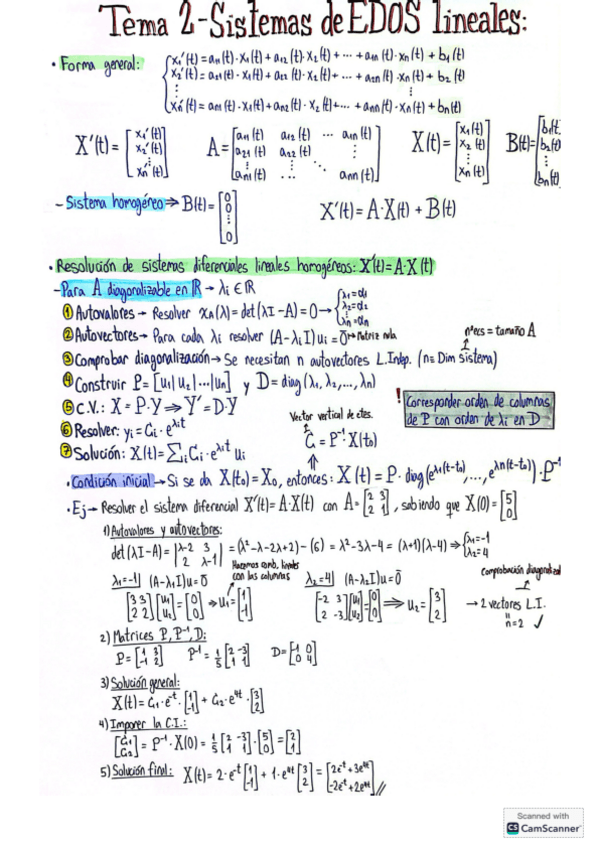 Tema 2-Sistemas de EDOS lineales:
• Forma general: { x₁'(t) = a₁₁(t)·x₁(t) + a₁₂(t)·x₂(t) + ··· + a₁ₙ(t)·xₙ(t) + b₁(t)
x₂'(t) = a₂₁(t)·x₁(t) + a₂₂(t)·x₂(t) + ··· + a₂ₙ(t)·xₙ(t) + b₂(t)
⋮
xₙ'(t) = aₙ₁(t)·x₁(t) + aₙ₂(t)·x₂(t) + ··· + aₙₙ(t)·xₙ(t) + bₙ(t)
X'(t) = [x₁'(t) x₂'(t) ⋮ xₙ'(t)] A = [a₁₁(t) a₁₂(t) ··· a₁ₙ(t) a₂₁(t) a₂₂(t) ⋮ ⋮ ⋱ ⋮ aₙ₁(t) ... aₙₙ(t)] X(t) = [x₁(t) x₂(t) ⋮ xₙ(t)] B(t) = [b₁(t) b₂(t) ⋮ bₙ(t)]
- Sistema homogéneo ⇒ B(t) = [0 0 ⋮ 0] X'(t) = A·X(t) + B(t)
• Resolución de sistemas diferenciales lineales homogéneos: X'(t) = A·X(t)
- Para A diagonalizable en ℝ → λi ∈ ℝ
① Autovalores → Resolver χA(λ) = det(λI-A) = 0 → { λ₁=α₁ λ₂=α₂ ⋮ λₙ=αₙ
② Autovectores → Para cada λi resolver (A-λiI)ui = 0̄ → Matriz nula
nº ecs = tamaño A
③ Comprobar diagonalización → Se necesitan n autovectores L.Indep. (n = Dim sistema)
④ Construir P = [u₁|u₂|···|uₙ] y D = diag(λ₁, λ₂, ..., λₙ)
! Corresponder orden de columnas
de P con orden de λi en D
⑤ C.V.: X = P·Y ⇒ Y' = D·Y
Vector vertical de ctes.
⑥ Resolver: yi = Ci·e^λit
C̄ = P⁻¹·X(t₀)
⑦ Solución: X(t) = Σi Ci·e^λit ui
• Condición inicial → Si se da X(t₀) = X₀, entonces: X(t) = P·diag(e^λ₁(t-t₀), ..., e^λₙ(t-t₀))·P⁻¹
• Ej → Resolver el sistema diferencial X'(t) = A·X(t) con A = [2 3 2 1], sabiendo que X(0) = [5 0]
1) Autovalores y autovectores:
det(λI-A) = |λ-2 3 2 λ-1| = (λ²-λ-2λ+2) - (6) = λ²-3λ-4 = (λ+1)(λ-4) ⇒ { λ₁=-1 λ₂=4
Hacemos comb. lineales
con las columnas
λ₁=-1 (A-λ₁I)u = 0̄ λ₂=4 (A-λ₂I)u = 0̄
Comprobación diagonalizd
[3 3 2 2][u₁ u₂] = [0 0] ⇒ u₁ = [1 -1] [-2 3 2 -3][u₁ u₂] = [0 0] ⇒ u₂ = [3 2] → 2 vectores L.I.
n=2 ✓
2) Matrices P, P⁻¹, D:
P = [1 3 -1 2] P⁻¹ = 1/5 [2 -3 1 1] D = [-1 0 0 4]
3) Solución general:
X(t) = C₁·e⁻ᵗ·[1 -1] + C₂·e⁴ᵗ·[3 2]
4) Imponer la C.I.:
[C₁ C₂] = P⁻¹·X(0) = 1/5 [2 -3 1 1]·[5 0] = [2 1]
5) Solución final: X(t) = 2·e⁻ᵗ[1 -1] + 1·e⁴ᵗ[3 2] = [2e⁻ᵗ+3e⁴ᵗ -2e⁻ᵗ+2e⁴ᵗ] //
Scanned with
CS CamScanner